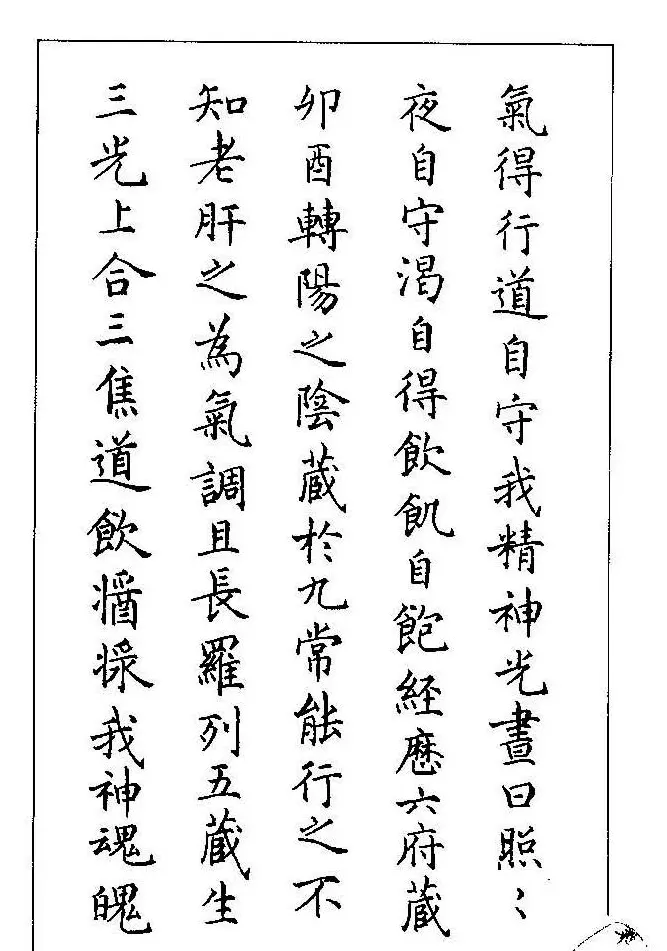 氣得行道自守我精神光晝日照〻
夜自守渴自得飲飢自飽經歷六府藏
卯酉轉陽之陰藏於九常能行之不
知老肝之為氣調且長羅列五藏生
三光上合三焦道飲醬漿我神魂魄